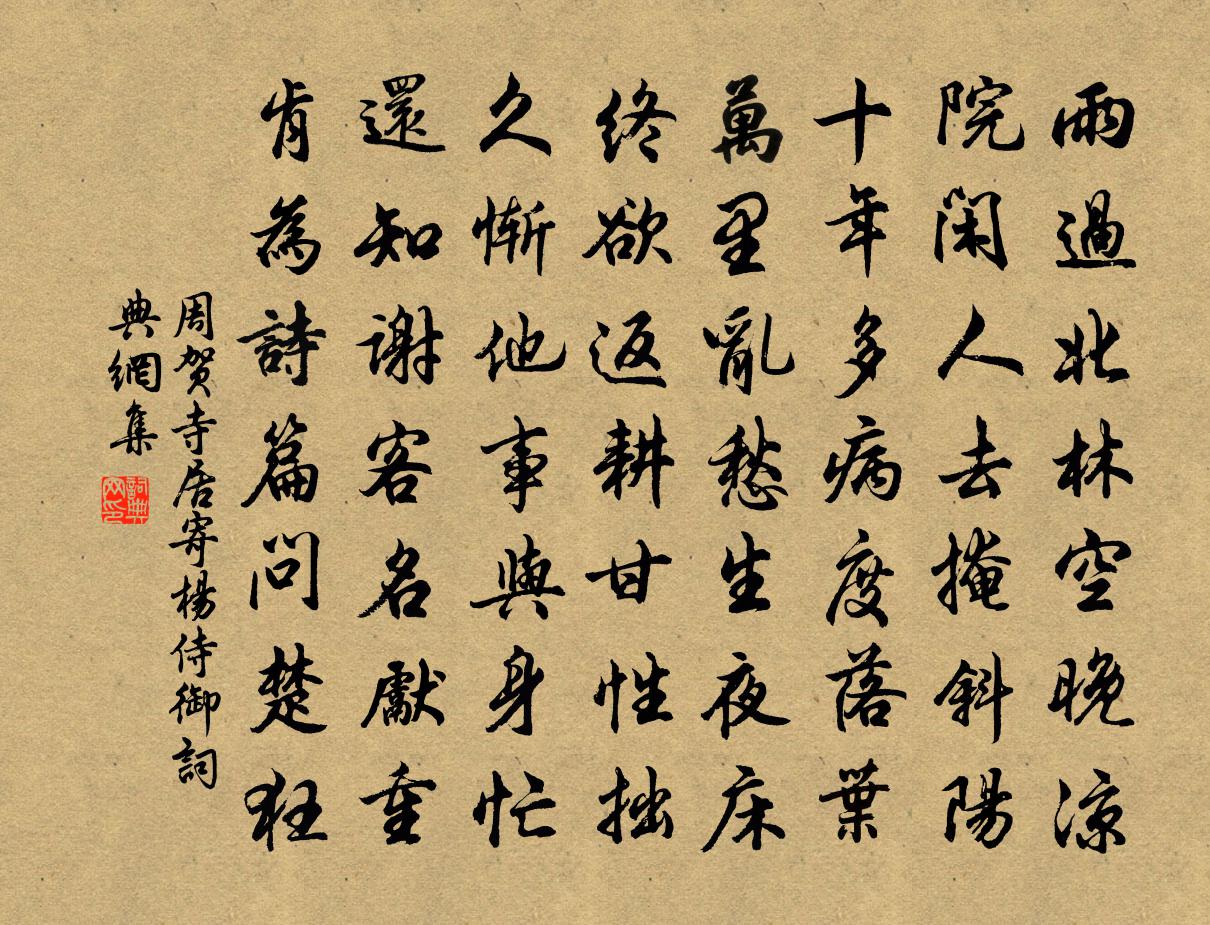 雨過北林空晚涼
院閑人去掩斜陽
十年多病度落葉
萬里亂愁生夜床
終欲返耕甘性拙
久慚他事與身忙
還知謝客名獻重
肯為詩篇問楚狂
周贺寺居寄楊侍御詞
典網集
詞典網印